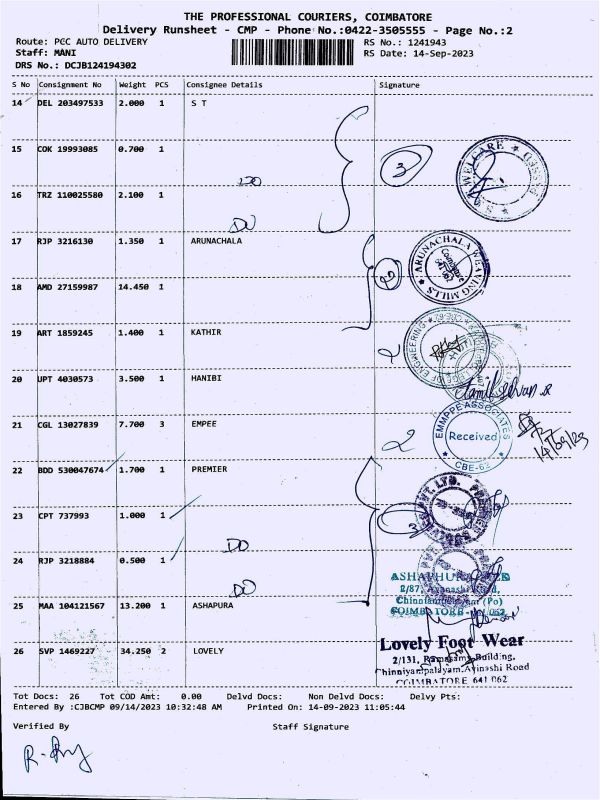 THE PROFESSIONAL COURIERS, COIMBATORE
Delivery Runsheet - CMP - Phone No.:0422-3505555 - Page No.:2
Route: PCC AUTO DELIVERY RS No.: 1241943
Staff: MANI RS Date: 14-Sep-2023
DRS No.: DCJB124194302
S No Consignment No Weight PCS Consignee Details Signature
14 DEL 203497533 2.000 1 S T
15 COK 19993085 0.700 1
3
WELCARE
DO
16 TRZ 110025580 2.100 1
DO
17 RJP 3216130 1.350 1 ARUNACHALA
ARUNACHALA WEAVING MILLS
2
18 AMD 27159987 14.450 1
19 ART 1859245 1.400 1 KATHIR
ENGINEERING
2
20 UPT 4030573 3.500 1 HANIBI
21 CGL 13027839 7.700 3 EMPEE
EMMPPE ASSOCIATES
Received
CBE-62
2
14/09/23
22 BDD 530047674 1.700 1 PREMIER
23 CPT 737993 1.000 1
3
DO
24 RJP 3218884 0.500 1
DO
2/87, Avanashi Road,
Chinniampalayam (Po)
COIMBATORE - 641 062
25 MAA 104121567 13.200 1 ASHAPURA
26 SVP 1469227 34.250 2 LOVELY
Lovely Foot Wear
2/131, Ramasamy Building,
Chinniyampalayam, Avinashi Road
COIMBATORE 641 062
Tot Docs: 26 Tot COD Amt: 0.00 Delvd Docs: Non Delvd Docs: Delvy Pts:
Entered By :CJBCMP 09/14/2023 10:32:48 AM Printed On: 14-09-2023 11:05:44
Verified By Staff Signature